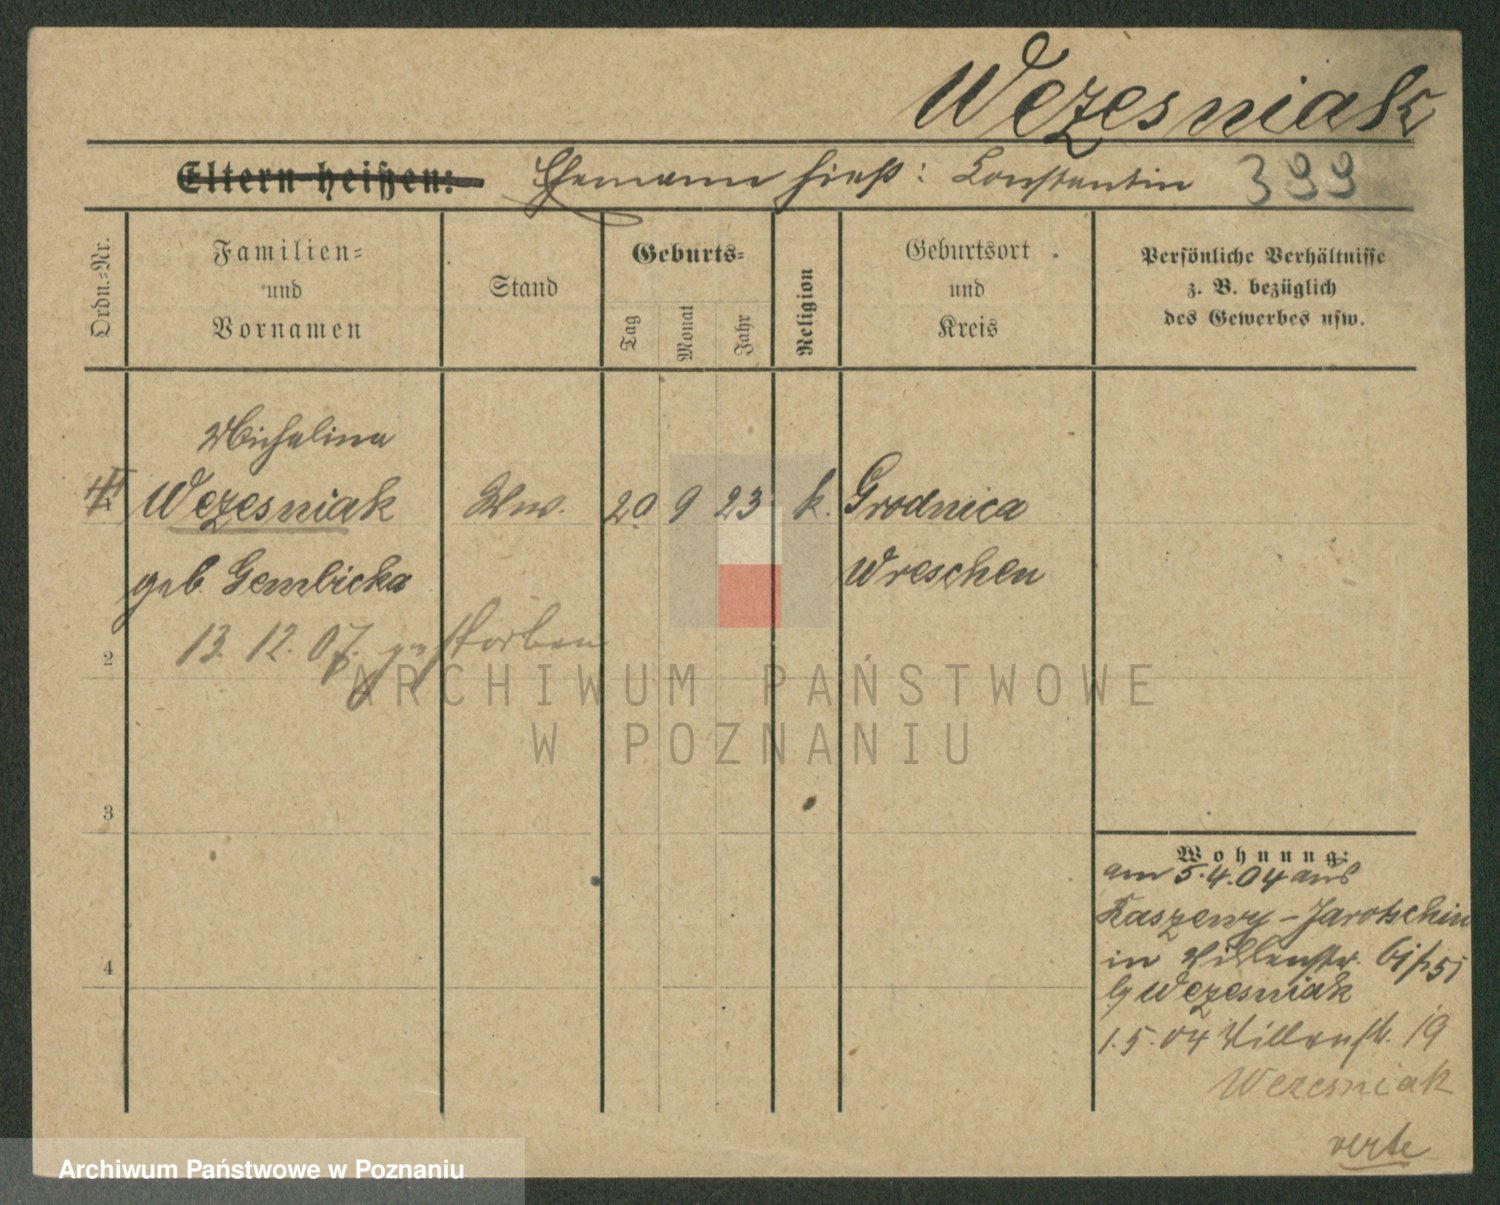 Wezesniak
Eltern heißen: Ehemann hieß: Constantin 399
Ordn.-Nr.
Familien-
und
Vornamen
Stand
Geburts-
Tag
Monat
Jahr
Religion
Geburtsort
und
Kreis
Persönliche Verhältnisse
z. B. bezüglich
des Gewerbes usw.
Michalina
Wezesniak Ww. 20 9 23 k. Grodnica
geb. Gembicka Wreschen
13. 12. 07. gestorben
2
3
4
ARCHIWUM PAŃSTWOWE
W POZNANIU
Wohnung:
am 5.4.04 aus
Kaszewy-Jarotschin
in Villenstr.
Wezesniak
1.5.04 Villenstr. 19
Wezesniak
verte
Archiwum Państwowe w Poznaniu